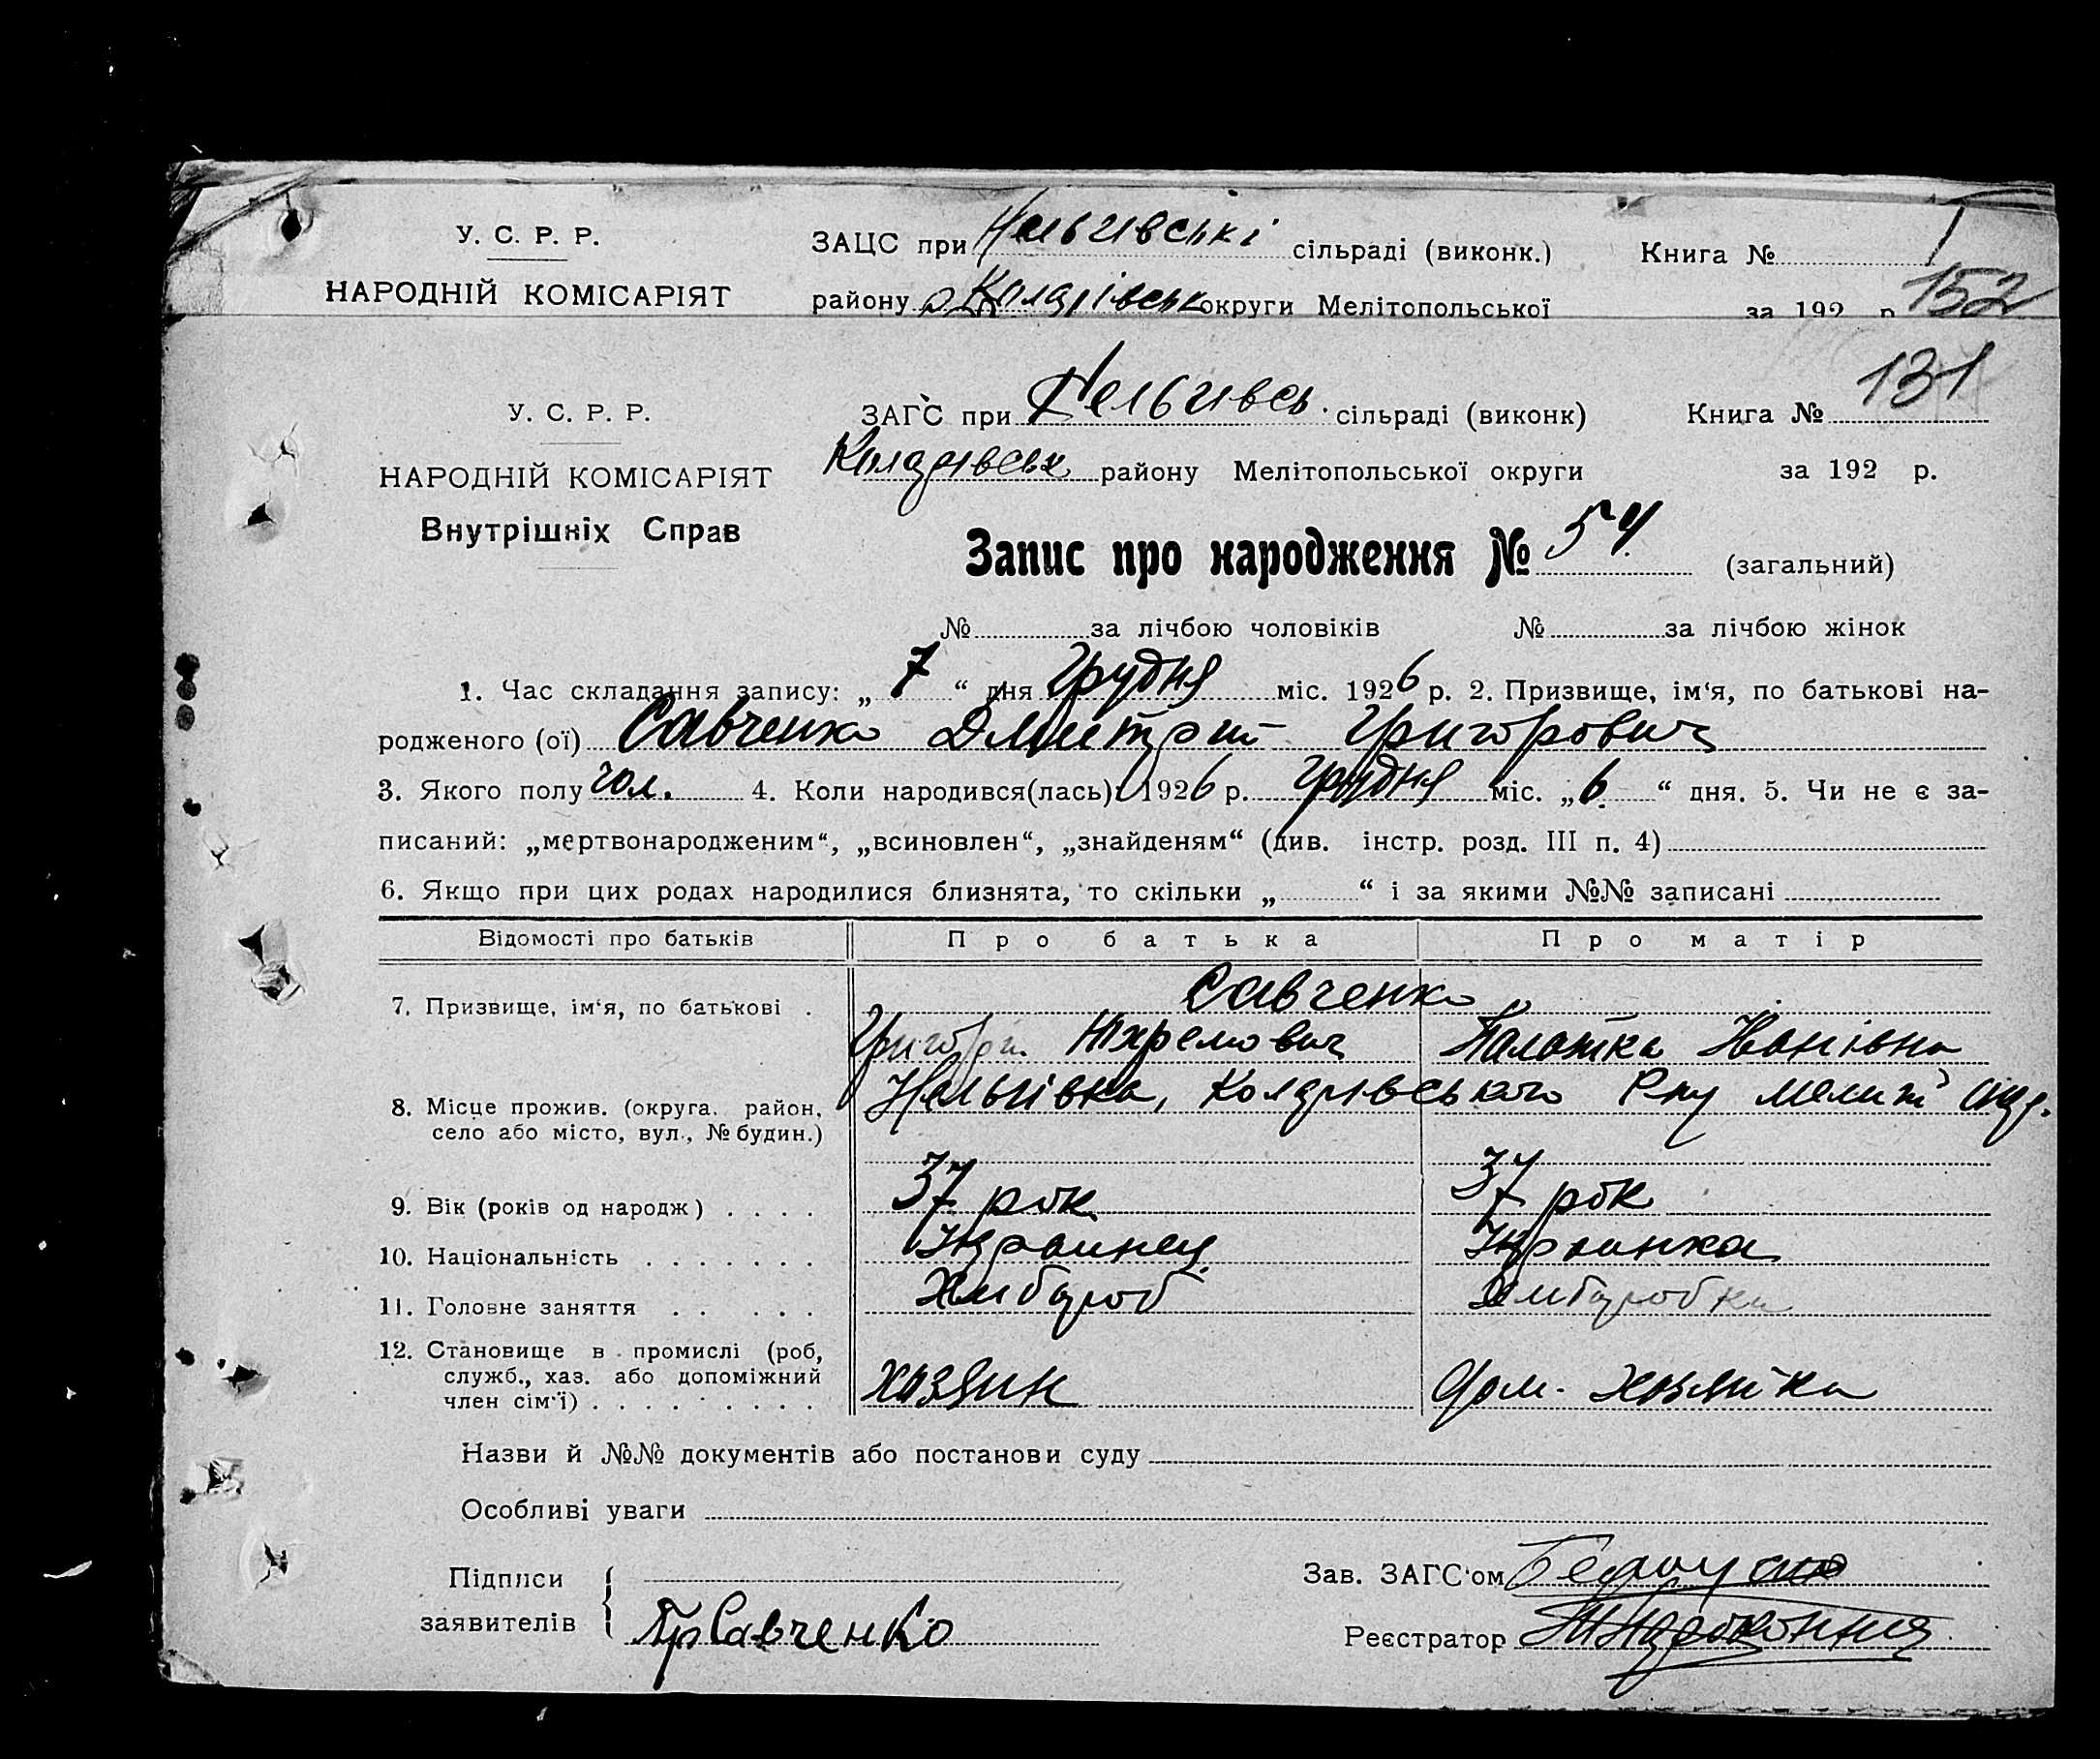 У. С. Р. Р. ЗАЦС при Нельгівські сільраді (виконк.) Книга № 1
НАРОДНІЙ КОМІСАРІЯТ району Коларівськ округи Мелітопольської за 192 р. 152
У. С. Р. Р. ЗАГС при Нельгівсь. сільраді (виконк) Книга № 131
НАРОДНІЙ КОМІСАРІЯТ Коларівськ району Мелітопольської округи за 192 р.
Внутрішніх Справ
Запис про народження № 54 (загальний)
№ за лічбою чоловіків № за лічбою жінок
1. Час складання запису: „ 7 “ дня Грудня міс. 1926 р. 2. Призвище, ім‘я, по батькові на-
родженого (ої) Савченко Дмитрий Григорович
3. Якого полу чол. 4. Коли народився(лась) 1926 р. Грудня міс. „ 6 “ дня. 5. Чи не є за-
писаний: „мертвонародженим“, „всиновлен“, „знайденям“ (див. інстр. розд. III п. 4)
6. Якщо при цих родах народилися близнята, то скільки „ “ і за якими №№ записані
Відомості про батьків Про батька Про матір
Савченко
7. Призвище, ім‘я, по батькові .
Григорій Юхремович Палажка Іванівна
8. Місце прожив. (округа, район, Нельгівка, Коларівського Р-ну Мелит окр.
село або місто, вул., № будин.)
9. Вік (років од народж) . . . . 37 рок 37 рок
10. Національність . . . . . . . Украинец Украинка
11. Головне заняття . . . . . Хлибороб Хлиборобка
12. Становище в промислі (роб,
служб., хаз. або допоміжний хазяин дом. хазяйка
член сім‘ї) . . . . . . . . .
Назви й №№ документів або постанови суду
Особливі уваги
Підписи Зав. ЗАГС‘ом
заявителів Гр Савченко Реєстратор